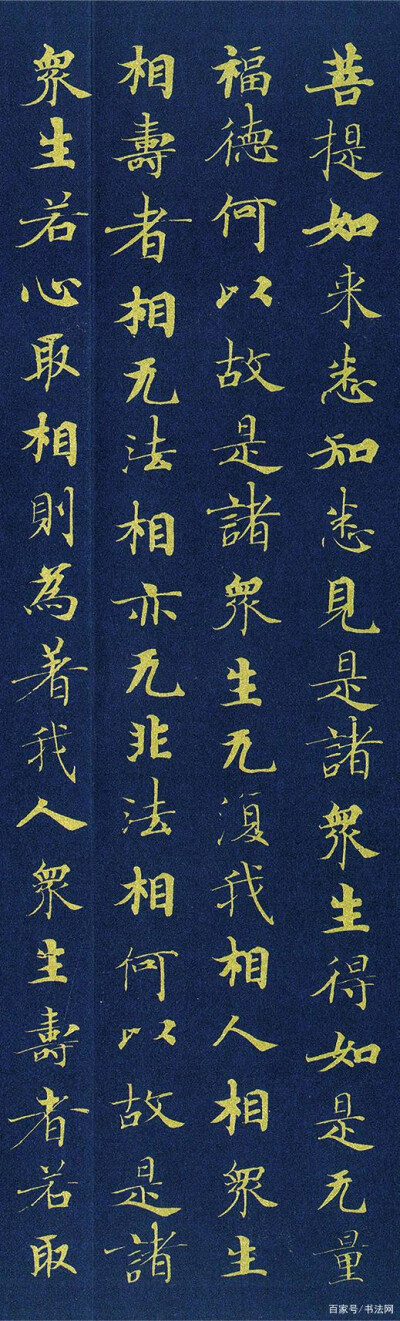 菩提如来悉知悉見是諸眾生得如是无量
福德何以故是諸眾生无復我相人相眾生
相壽者相无法相亦无非法相何以故是諸
眾生若心取相則為著我人眾生壽者若取
百家号/书法网